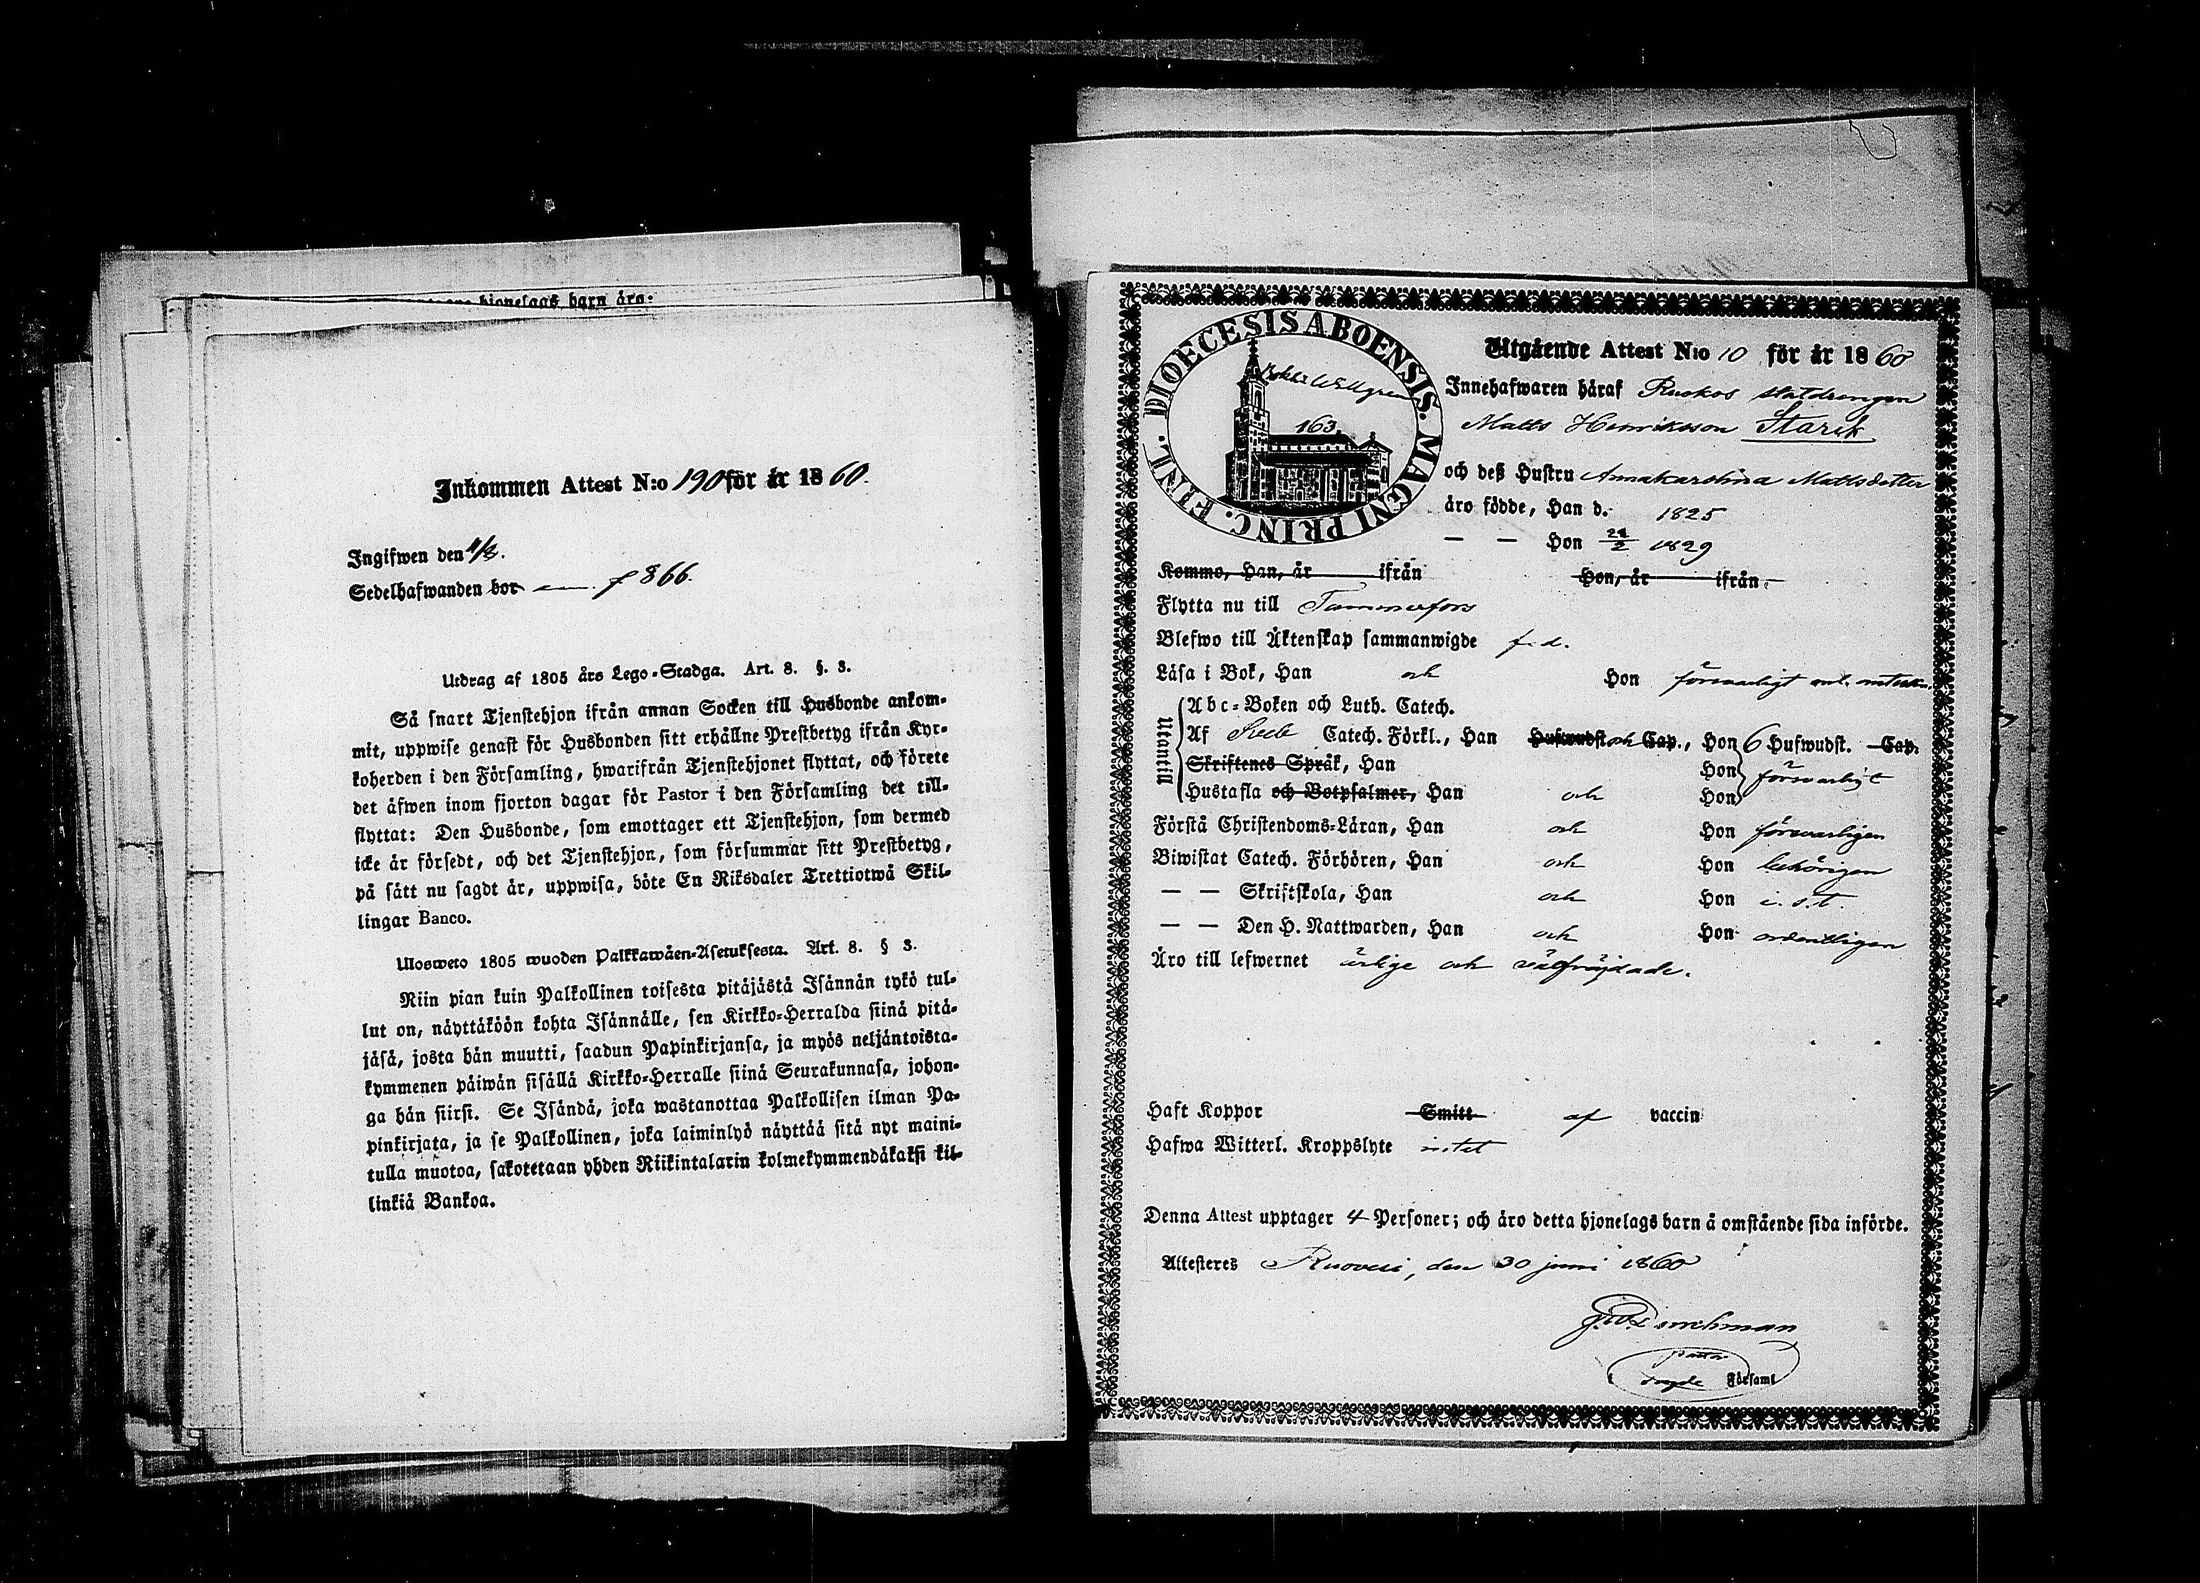 hjonelags barn äro:
Inkommen Attest N:o 190 för år 1860.
Ingifwen den 11/8.
Sedelhafwanden bor f 866.
Utdrag af 1805 års Lego-Stadga. Art. 8. §. 3.
Så snart Tjenstehjon ifrån annan Socken till Husbonde ankom-
mit, uppwise genast för Husbonden sitt erhållne Prestbetyg ifrån Kyr-
koherden i den Församling, hwarifrån Tjenstehjonet flyttat, och förete
det äfwen inom fjorton dagar för Pastor i den Församling det till-
flyttat: Den Husbonde, som emottager ett Tjenstehjon, som dermed
icke är försedt, och det Tjenstehjon, som försummar sitt Prestbetyg,
på sätt nu sagdt är, uppwisa, böte En Riksdaler Trettiotwå Skil-
lingar Banco.
Ulosweto 1805 wuoden Palkkawäen-Asetuksesta. Art. 8. § 3.
Niin pian kuin Palkollinen toisesta pitäjästä Isännän tykö tul-
lut on, näyttäköön kohta Isännälle, sen Kirkko-Herralda siinä pitä-
jäsä, josta hän muutti, saadun Papinkirjansa, ja myös neljäntoista-
kymmenen päiwän sisällä Kirkko-Herralle siinä Seurakunnasa, johon-
ga hän siirsi. Se Isändä, joka wastanottaa Palkollisen ilman Pa-
pinkirjata, ja se Palkollinen, joka laiminlyö näyttää sitä nyt maini-
tulla muotoa, sakotetaan yhden Riikintalarin kolmekymmendäkaksi kil-
linkiä Bankoa.
DIOECESIS ABOENSIS. MAGNI PRINC. FINL.
163
Utgående Attest N:o 10 för år 1860
Innehafwaren häraf Ruokos statdrengen
Matts Henriksson Starck
och deß Hustru Annakarolina Mattsdotter
äro födde, Han d. 1825
— — Hon 22/2 1829
Kommo, Han, år ifrån Hon, år ifrån
Flytta nu till Tammerfors
Blefwo till Äktenskap sammanwigde f. d.
Läsa i Bok, Han och Hon försvarligt
Utantill
Abc-Boken och Luth. Catech.
Af Catech. Förkl., Han Hufwudst. och Cap., Hon 6 Hufwudst. Cap.
Skriftenes Språk, Han Hon försvarligt
Hustafla och Botpsalmer, Han och Hon
Förstå Christendoms-Läran, Han och Hon försvarligen
Biwistat Catech. Förhören, Han och Hon behörigen
— — Skriftskola, Han och Hon i. s. t.
— — Den H. Nattwarden, Han och Hon ordentligen
Äro till lefwernet ärlige och välfräjdade.
Haft Koppor Smitt af vaccin
Hafwa Witterl. Kroppslyte intet
Denna Attest upptager 4 Personer; och äro detta hjonelags barn å omstående sida införde.
Attesteres Ruovesi, den 30 juni 1860
pastor
Församl